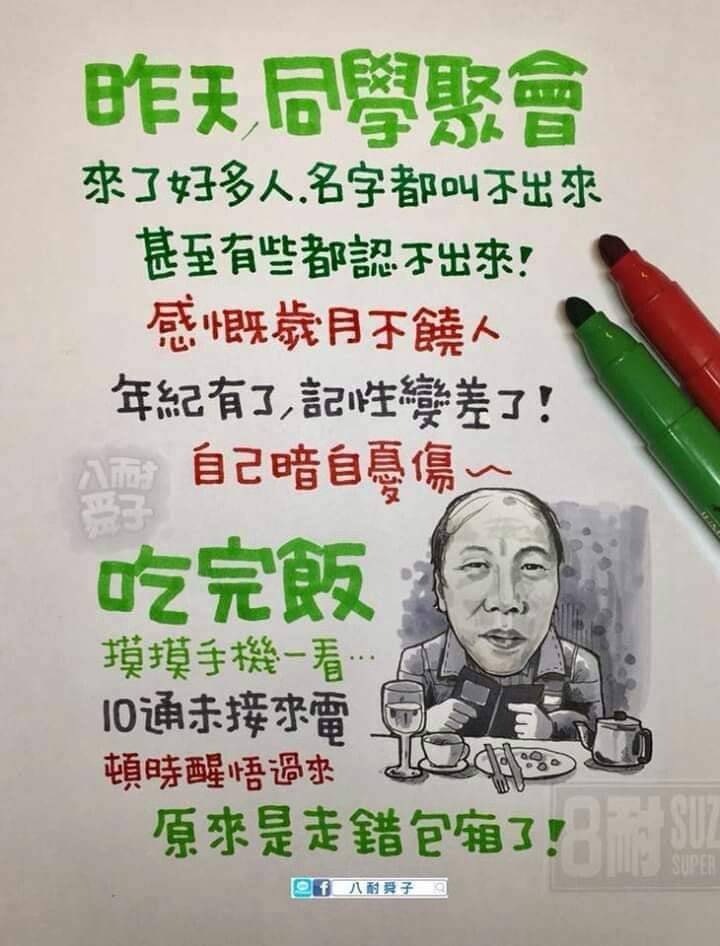 昨天,同學聚會
來了好多人.名字都叫不出來
甚至有些都認不出來!
感慨歲月不饒人
年紀有了,記性變差了!
自己暗自憂傷~
八耐
舜子
吃完飯
摸摸手機一看…
10通未接來電
頓時醒悟過來
原來是走錯包廂了!
8耐 SUZ
SUPER
八耐舜子